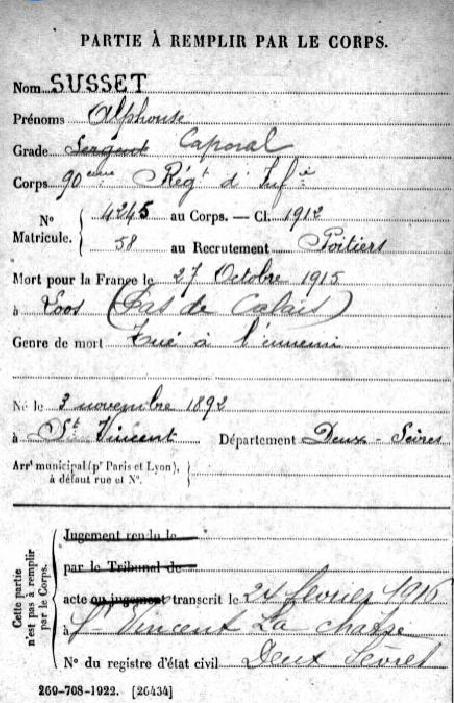 PARTIE À REMPLIR PAR LE CORPS.
Nom SUSSET
Prénoms Alphonse
Grade Sergent Caporal
Corps 90ème Régt d'Infie
Nº Matricule. 4245 au Corps. — Cl. 1912
58 au Recrutement Poitiers
Mort pour la France le 27 Octobre 1915
à Loos (Pas de Calais)
Genre de mort Tué à l'ennemi
Né le 3 novembre 1892
à St Vincent Département Deux-Sèvres
Arrt municipal (pr Paris et Lyon),
à défaut rue et Nº.
Cette partie n'est pas à remplir par le Corps.
Jugement rendu le
par le Tribunal de
acte ou jugement transcrit le 24 février 1916
à St Vincent La Chatre
Nº du registre d'état civil Deux Sèvres
269-708-1922. [26434]